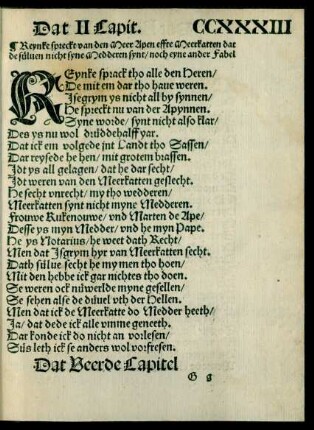 Dat II Capit. CCXXXIII
¶ Reynke spreckt van den Meer Apen effte Meerkatten dat
de süluen nicht syne Medderen synt / noch eyne ander Fabel
REynke sprack tho alle den Heren /
De mit em dar tho haue weren.
Isegrym ys nicht all by synnen /
He spreckt nu van der Apynnen.
Syne worde / synt nicht also klar /
Des ys nu wol drüddehalff yar.
Dat ick em volgede jnt Landt tho Sassen /
Dar reysede he hen / mit grotem brassen.
Idt ys all gelagen / dat he dar secht /
Idt weren van den Meerkatten geslecht.
He secht vnrecht / my tho wedderen /
Meerkatten synt nicht myne Medderen.
Frouwe Rukenouwe / vnd Marten de Ape /
Desse ys myn Medder / vnd he myn Pape.
He ys Notarius / he weet dath Recht /
Men dat Isgrym hyr van Meerkatten secht.
Dath sülue secht he my men tho hoen /
Mit den hebbe ick gar nichtes tho doen.
Se weren ock nüwerlde myne gesellen /
Se sehen alse de düuel vth der Hellen.
Men dat ick de Meerkatte do Medder heeth /
Ja / dat dede ick alle vmme geneeth.
Dar konde ick do nicht an vorlesen /
Süs leth ick se anders wol vorfresen.
Dat Veerde Capitel
G g